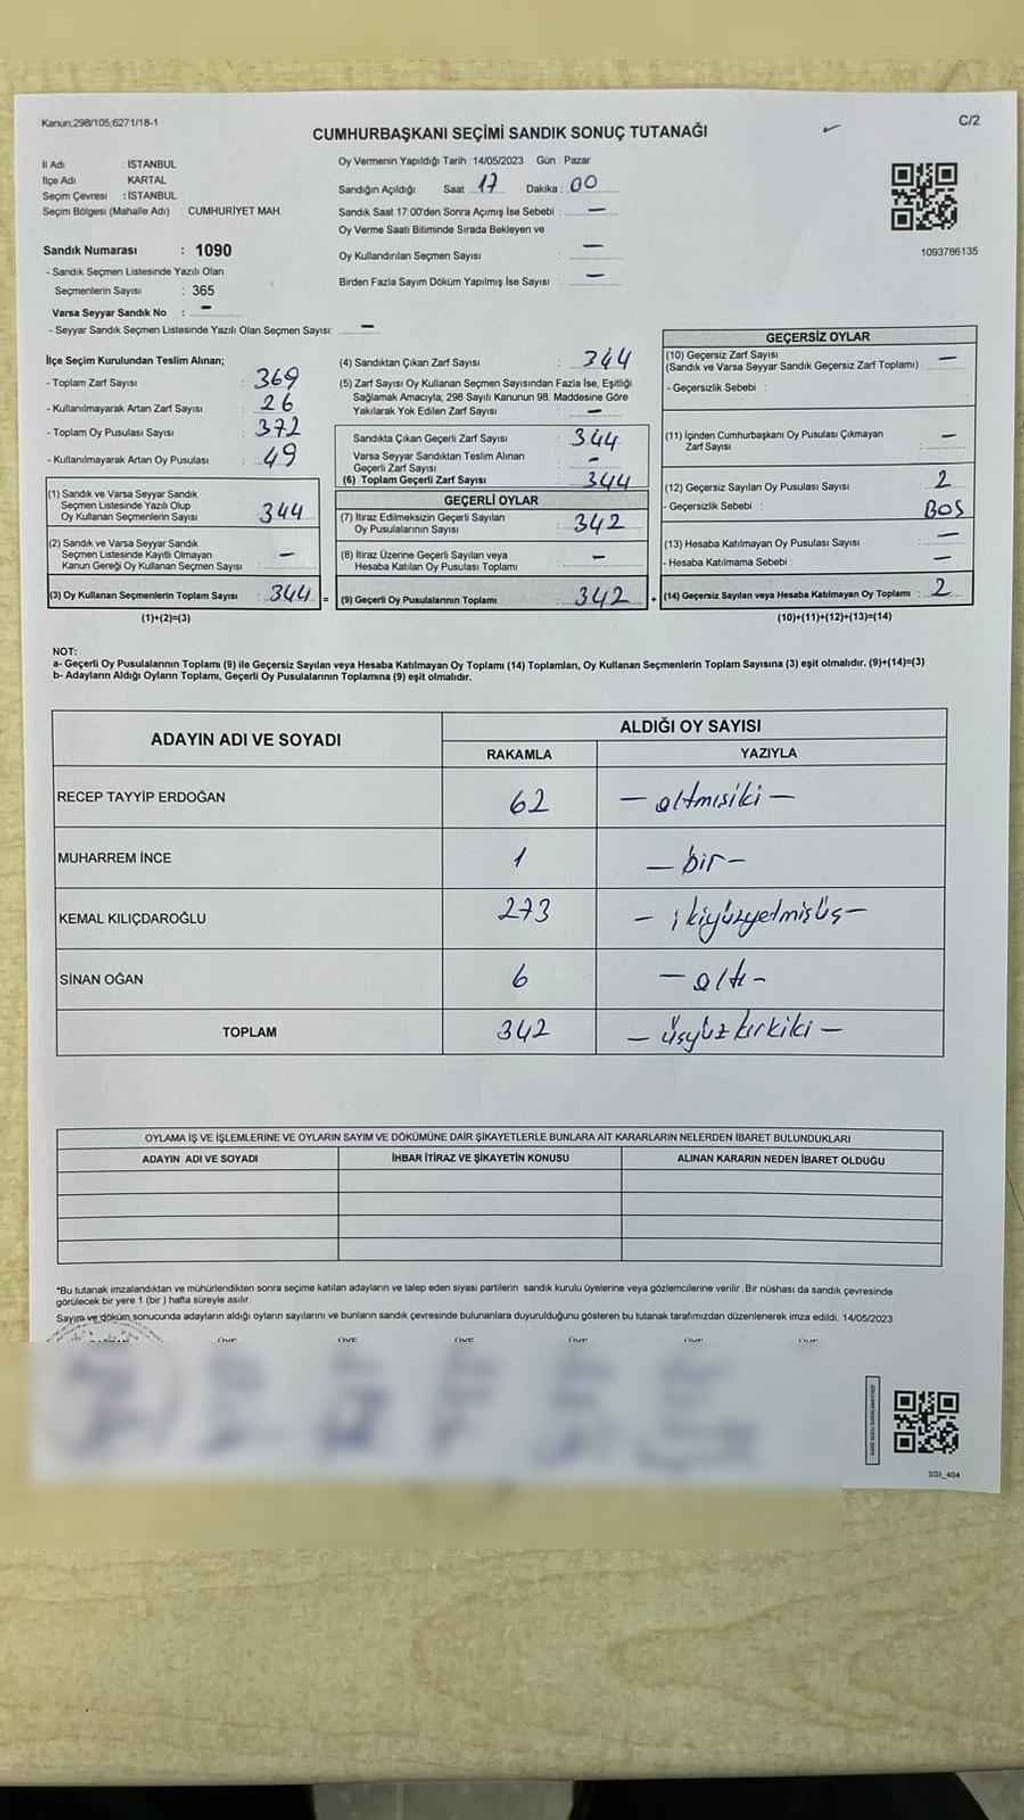 Kanun:298/105;6271/18-1
C/2
CUMHURBAŞKANI SEÇİMİ SANDIK SONUÇ TUTANAĞI
İl Adı : İSTANBUL
İlçe Adı : KARTAL
Seçim Çevresi : İSTANBUL
Seçim Bölgesi (Mahalle Adı) CUMHURİYET MAH.
Sandık Numarası : 1090
- Sandık Seçmen Listesinde Yazılı Olan
Seçmenlerin Sayısı : 365
Varsa Seyyar Sandık No : –
- Seyyar Sandık Seçmen Listesinde Yazılı Olan Seçmen Sayısı: –
Oy Vermenin Yapıldığı Tarih : 14/05/2023 Gün : Pazar
Sandığın Açıldığı Saat 17 Dakika : 00
Sandık Saat 17:00'den Sonra Açımış İse Sebebi : –
Oy Verme Saati Bitiminde Sırada Bekleyen ve
Oy Kullandırılan Seçmen Sayısı : –
Birden Fazla Sayım Döküm Yapılmış İse Sayısı : –
1093786135
İlçe Seçim Kurulundan Teslim Alınan;
- Toplam Zarf Sayısı : 369
- Kullanılmayarak Artan Zarf Sayısı : 26
- Toplam Oy Pusulası Sayısı : 372
- Kullanılmayarak Artan Oy Pusulası : 49
(1) Sandık ve Varsa Seyyar Sandık
Seçmen Listesinde Yazılı Olup
Oy Kullanan Seçmenlerin Sayısı : 344
(2) Sandık ve Varsa Seyyar Sandık
Seçmen Listesinde Kayıtlı Olmayan
Kanun Gereği Oy Kullanan Seçmen Sayısı –
(3) Oy Kullanan Seçmenlerin Toplam Sayısı : 344 =
(1)+(2)=(3)
(4) Sandıktan Çıkan Zarf Sayısı : 344
(5) Zarf Sayısı Oy Kullanan Seçmen Sayısından Fazla İse, Eşitliği
Sağlamak Amacıyla; 298 Sayılı Kanunun 98. Maddesine Göre
Yakılarak Yok Edilen Zarf Sayısı –
Sandıkta Çıkan Geçerli Zarf Sayısı : 344
Varsa Seyyar Sandıktan Teslim Alınan
Geçerli Zarf Sayısı : –
(6) Toplam Geçerli Zarf Sayısı : 344
GEÇERLİ OYLAR
(7) İtiraz Edilmeksizin Geçerli Sayılan
Oy Pusulalarının Sayısı : 342
(8) İtiraz Üzerine Geçerli Sayılan veya
Hesaba Katılan Oy Pusulası Toplamı : –
(9) Geçerli Oy Pusulalarının Toplamı : 342 +
GEÇERSİZ OYLAR
(10) Geçersiz Zarf Sayısı
(Sandık ve Varsa Seyyar Sandık Geçersiz Zarf Toplamı) : –
- Geçersizlik Sebebi :
(11) İçinden Cumhurbaşkanı Oy Pusulası Çıkmayan
Zarf Sayısı : –
(12) Geçersiz Sayılan Oy Pusulası Sayısı : 2
- Geçersizlik Sebebi : BOŞ
(13) Hesaba Katılmayan Oy Pusulası Sayısı : –
- Hesaba Katılmama Sebebi : –
(14) Geçersiz Sayılan veya Hesaba Katılmayan Oy Toplamı : 2
(10)+(11)+(12)+(13)=(14)
NOT:
a- Geçerli Oy Pusulalarının Toplamı (9) ile Geçersiz Sayılan veya Hesaba Katılmayan Oy Toplamı (14) Toplamları, Oy Kullanan Seçmenlerin Toplam Sayısına (3) eşit olmalıdır. (9)+(14)=(3)
b- Adayların Aldığı Oyların Toplamı, Geçerli Oy Pusulalarının Toplamına (9) eşit olmalıdır.
ADAYIN ADI VE SOYADI
ALDIĞI OY SAYISI
RAKAMLA YAZIYLA
RECEP TAYYİP ERDOĞAN 62 – altmışiki –
MUHARREM İNCE 1 – bir –
KEMAL KILIÇDAROĞLU 273 – ikiyüzyetmişüş –
SİNAN OĞAN 6 – altı –
TOPLAM 342 – üşyüz kırkiki –
OYLAMA İŞ VE İŞLEMLERİNE VE OYLARIN SAYIM VE DÖKÜMÜNE DAİR ŞİKAYETLERLE BUNLARA AİT KARARLARIN NELERDEN İBARET BULUNDUKLARI
ADAYIN ADI VE SOYADI İHBAR İTİRAZ VE ŞİKAYETİN KONUSU ALINAN KARARIN NEDEN İBARET OLDUĞU
*Bu tutanak imzalandıktan ve mühürlendikten sonra seçime katılan adayların ve talep eden siyasi partilerin sandık kurulu üyelerine veya gözlemcilerine verilir. Bir nüshası da sandık çevresinde
görülecek bir yere 1 (bir) hafta süreyle asılır.
Sayım ve döküm sonucunda adayların aldığı oyların sayılarını ve bunların sandık çevresinde bulunanlara duyurulduğunu gösteren bu tutanak tarafımızdan düzenlenerek imza edildi. 14/05/2023